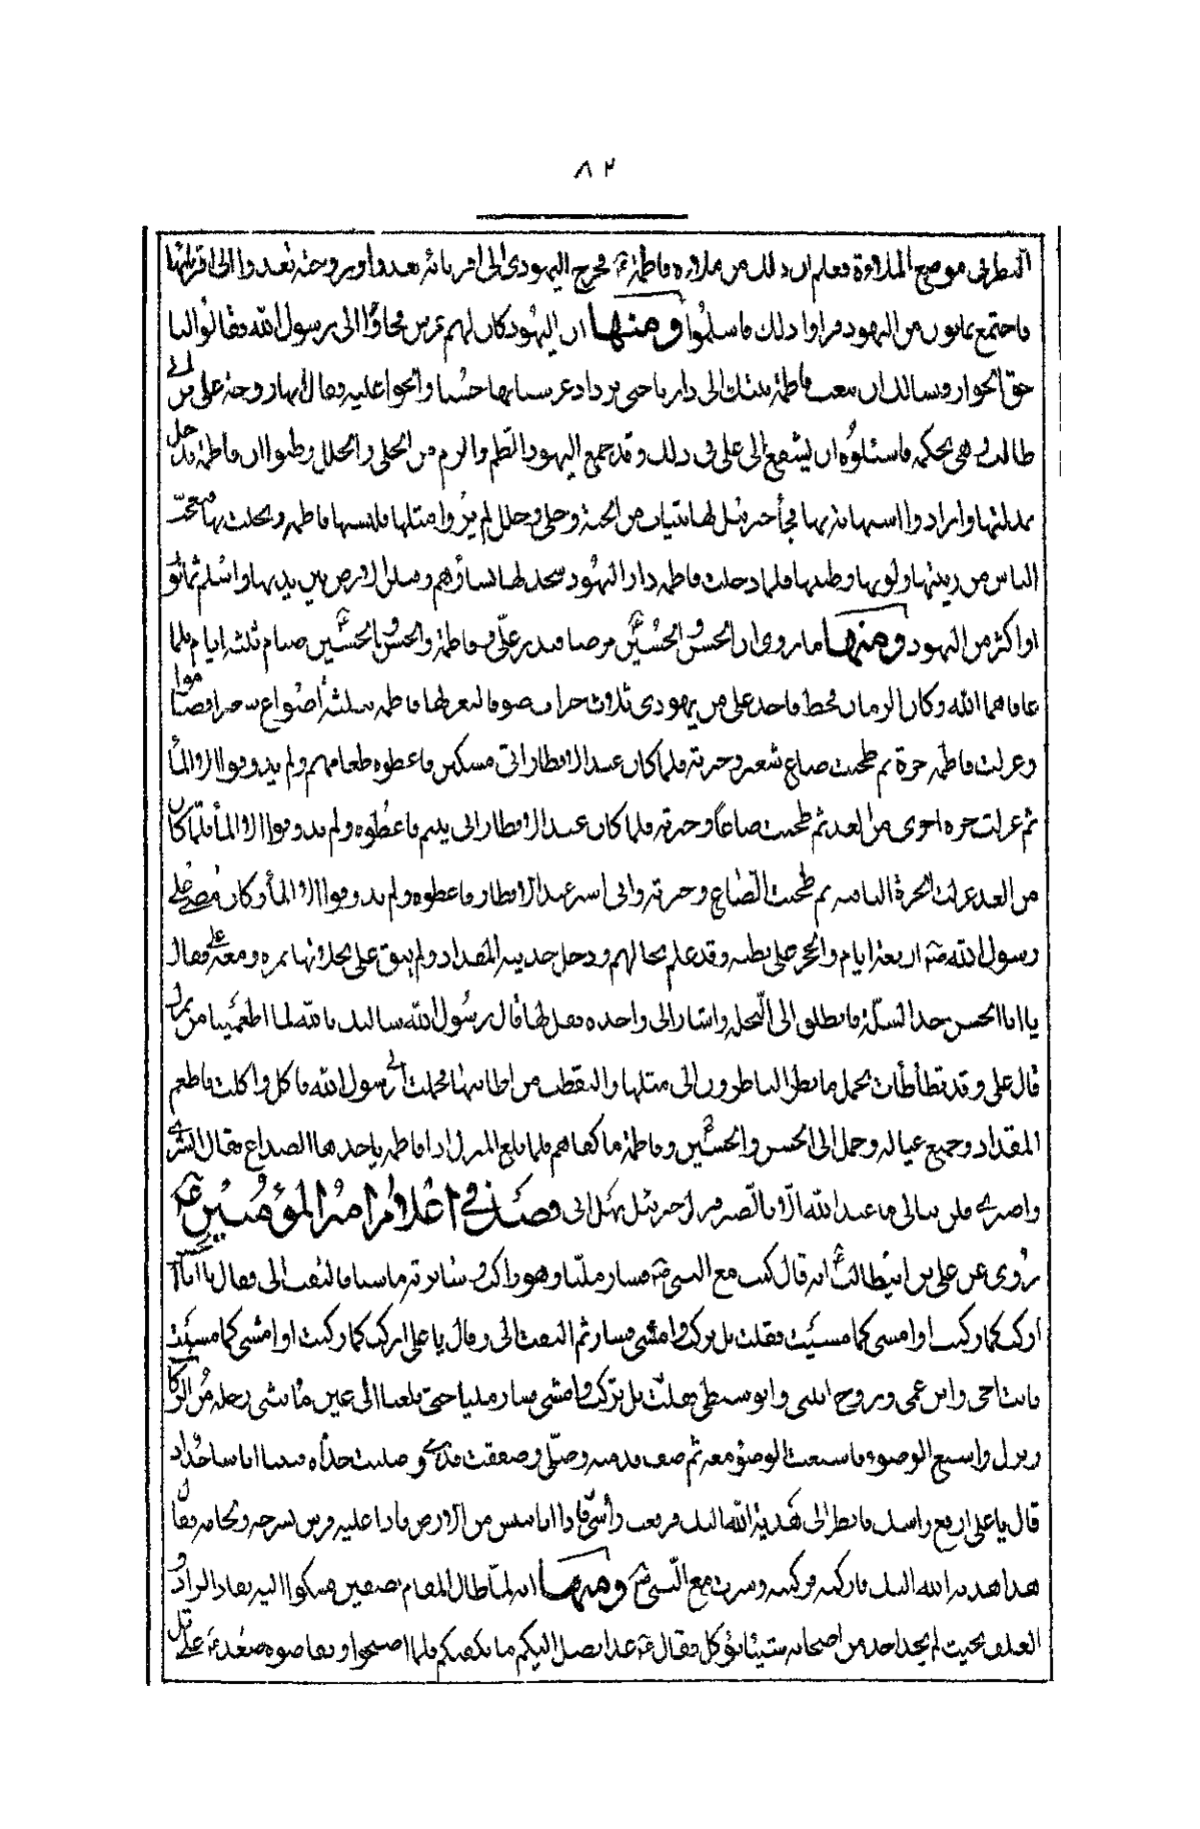 ٨٢
النظر فى موضع الملاءة فعلم ان ذلك من ملاءة فاطمة ع فخرج اليهودى الى اقربائه يعدو او زوجته تعدو الى اقربائها
فاجتمع ثمانون من اليهود فراوا ذلك فاسلموا ومنها ان اليهود كان لهم عرس فجاؤا الى رسول الله وقالوا لنا
حق الجوار فنسالك ان تبعث فاطمة بنتك الى دارنا حتى يزداد عرسنا بها حسنا والحوا عليه فقال انها زوجة على بن ابى
طالب وهى بحكمه فاسئلوه ان يشفع الى على فى ذلك وقد جمع اليهود الطم والرم من الحلى والحلل وظنوا ان فاطمة تدخل
بذلتها وارادوا استهانة بها فجاء جبرئيل لها بثياب من الجنة وحلى وحلل لم يروا مثلها فلبستها فاطمة وتحلت بها فتعجب
الناس من زينتها ولونها وطيبها فلما دخلت فاطمة دار اليهود سجد لها نساؤهم وقبلن الارض بين يديها واسلم ثمانون
او اكثر من اليهود ومنها ما روى ان الحسن والحسين ع مرضا فنذر على وفاطمة والحسن والحسين ع صيام ثلثة ايام فلما
عافاهما الله وكان الزمان قحط فاخذ على من يهودى ثلاث جزات صوفا لتغزلها فاطمة بثلثة اصواع شعيرا فصاموا
وغزلت فاطمة جزة ثم طحنت صاع شعير وخبزته فلما كان عند الافطار اتى مسكين فاعطوه طعامهم ولم يذوقوا الا الماء
ثم غزلت جزه اخرى من الغد ثم طحنت صاعا وخبزته فلما كان عند الافطار اتى يتيم فاعطوه ولم يذوقوا الا الماء فلما كان
من الغد غزلت الجزة الباقيه ثم طحنت الصاع وخبزته واتى اسير عند الافطار فاعطوه ولم يذوقوا الا الماء وكان مضى على
رسول الله ص اربعة ايام والحجر على بطنه وقد علم بحالهم ودخل حديقة المقداد ولم يبق على نخلاتها تمره ومعه على فقال
يا ابا الحسن خذ السلة فانطلق الى النخله واشار الى واحده فقل لها قال رسول الله سالتك بالله لما اطعمتينا من تمرك
قال على وقد تطأطأت بحمل ما نظر الناظرون الى مثلها والتقطت من اطائبها فحملت الى رسول الله فاكل واكلت فاطعم
المقداد وجميع عياله وحمل الى الحسن والحسين وفاطمة ما كفاهم فلما بلغ المنزل اذا فاطمه ياخذها الصداع فقال ابشرى
واصبرى فلن تنالى ما عند الله الا بالصبر فنزل جبرئيل بهل اتى فصل فى اعلام امير المؤمنين ع
روى عن على بن ابيطالب ع انه قال كنت مع النبى ص فسار مليا وهو راكب وسايرته ماشيا فالتفت الى فقال يا ابا الحسن
اركب كما ركبت او امشى كما مشيت فقلت بل تركب وامشى فسار ثم التفت الى وقال يا على اركب كما ركبت او امشى كما مشيت
فانت اخى وابن عمى وزوج ابنتى وابو سبطى فقلت بل تركب وامشى فسار مليا حتى بلغنا الى عين ماء فثنى رجله من الركاب
ونزل واسبغ الوضوء فاسبغت الوضوء معه ثم صف قدميه وصلى وصففت قدمى وصليت حذاه فبينا انا ساجد اذ
قال يا على ارفع راسك فانظر الى هدية الله اليك فرفعت رأسى فاذا انا بنشز من الارض فاذا عليه فرس بسرجه ولجامه فقال
هذا هدية الله اليك فاركبه فركبته وسرت مع النبى ص ومنها انه لما طال المقام بصفين شكوا اليه نفاد الزاد و
العلف بحيث لم يجد احد من اصحابه شيئا يؤكل فقال ع غدا يصل اليكم ما يكفيكم فلما اصبحوا وتقاضوه صعد ع على تل